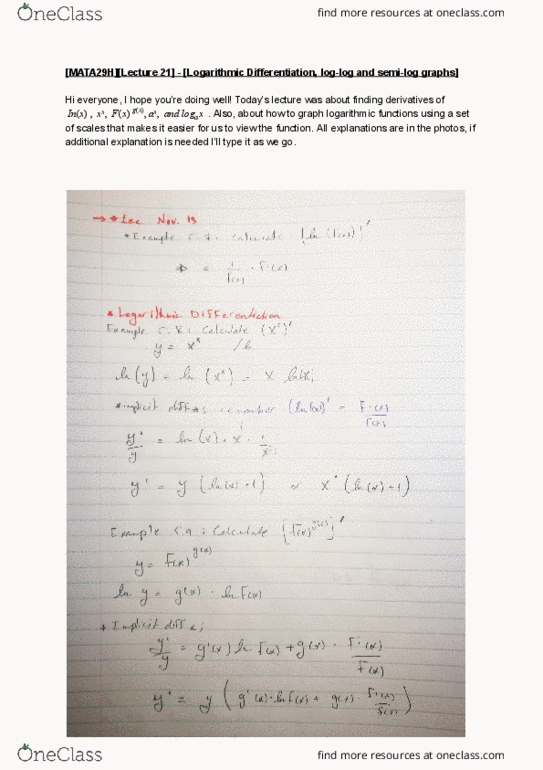 OneClass
find more resources at oneclass.com
[MATA29H][Lecture 21] - [Logarithmic Differentiation, log-log and semi-log graphs]
Hi everyone, I hope you're doing well! Today's lecture was about finding derivatives of
In(x) , xˣ, F(x)ᵍ⁽ˣ⁾, aˣ, and logₐx . Also, about how to graph logarithmic functions using a set
of scales that makes it easier for us to view the function. All explanations are in the photos, if
additional explanation is needed I'll type it as we go.
→ • Lec Nov. 13
* Example 5.7: calculate [ln (F(x))]'
⇒ = 1/F(x) · F'(x)
• Logarithmic Differentiation
Example 5.8: Calculate (xˣ)'
y = xˣ /ln
ln(y) = ln(xˣ) = x ln(x);
*implicit diff remember (ln F(x))' = F'(x)/F(x)
y'/y = ln(x) + x · 1/x
y' = y (ln(x) + 1) or xˣ (ln(x) + 1)
Example 5.9: Calculate [F(x)ᵍ⁽ˣ⁾]'
y = F(x)ᵍ⁽ˣ⁾
ln y = g(x) · ln F(x)
* Implicit diff
y'/y = g'(x) ln F(x) + g(x) · F'(x)/F(x)
y' = y (g'(x) · ln F(x) + g(x) · F'(x)/F(x))
OneClass
find more resources at oneclass.com